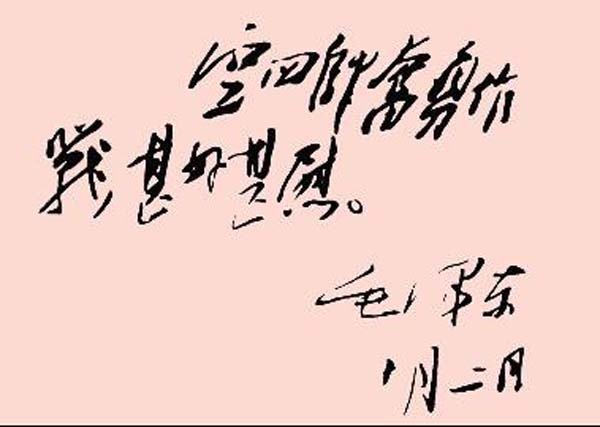 空四師奮勇作
戰，甚好甚慰。
毛澤東
十月二日